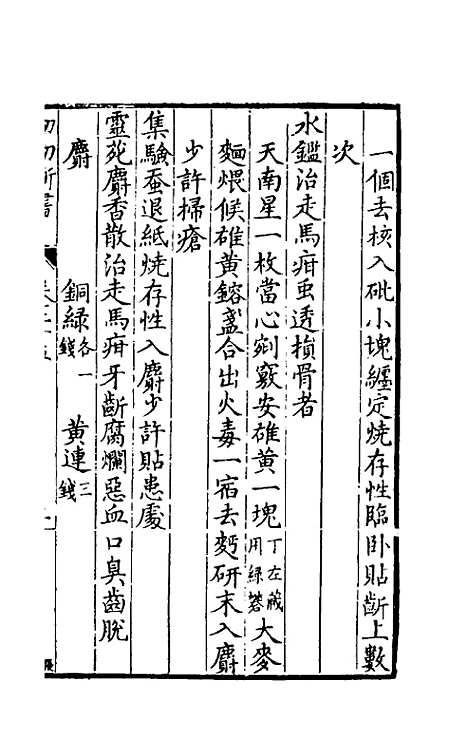 一個去核入砒小塊纏定燒存性臨卧貼齗上數
次
水鑑治走馬疳虫透損骨者
天南星一枚當心剜竅安雄黃一塊丁左藏用綠礬大麥
麵煨候雄黃鎔盞合出火毒一宿去麪研末入麝
少許掃瘡
集驗蚕退紙燒存性入麝少許貼患處
靈苑麝香散治走馬疳牙齗腐爛惡血口臭齒脫
麝 銅綠各一錢 黃連三錢
幼幼新書